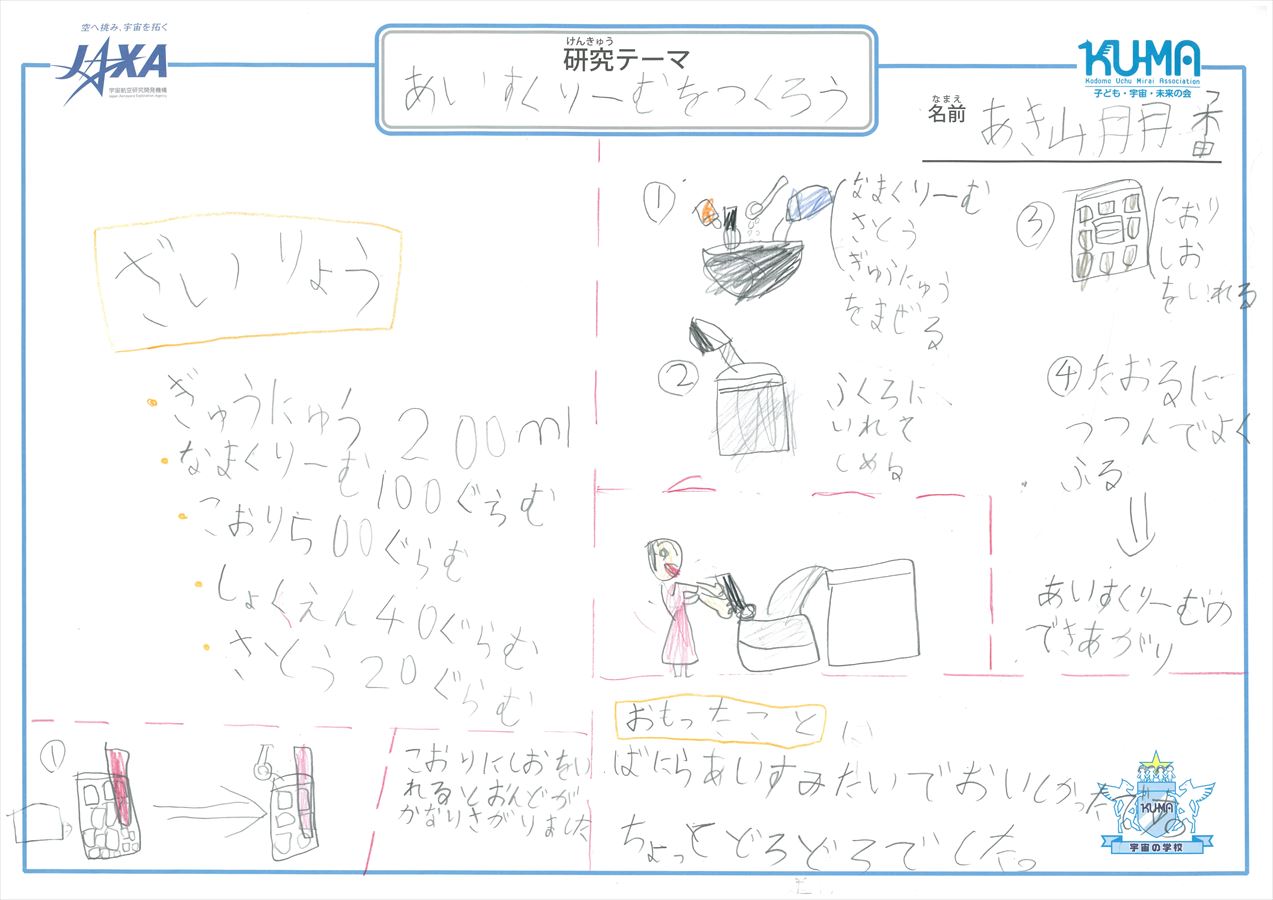 空へ挑み、宇宙を拓く
JAXA
宇宙航空研究開発機構
Japan Aerospace Exploration Agency
けんきゅう
研究テーマ
あいすくりーむをつくろう
KU-MA
Kodomo Uchu Mirai Association
子ども・宇宙・未来の会
なまえ
名前
あき山
ざいりょう
・ぎゅうにゅう 200ml
・なまくりーむ 100ぐらむ
・こおり500ぐらむ
・しょくえん40ぐらむ
・さとう20ぐらむ
①
こおりにしおをい
れるとおんどが
かなりさがりました
①
なまくりーむ
さとう
ぎゅうにゅう
をまぜる
②
ふくろに
いれて
しめる
③
こおり
しお
をいれる
④たおるに
つつんでよく
ふる
あいすくりーむの
できあがり
おもったこと
ばにらあいすみたいでおいしかった
ちょっとどろどろでした。
KUMA
宇宙の学校